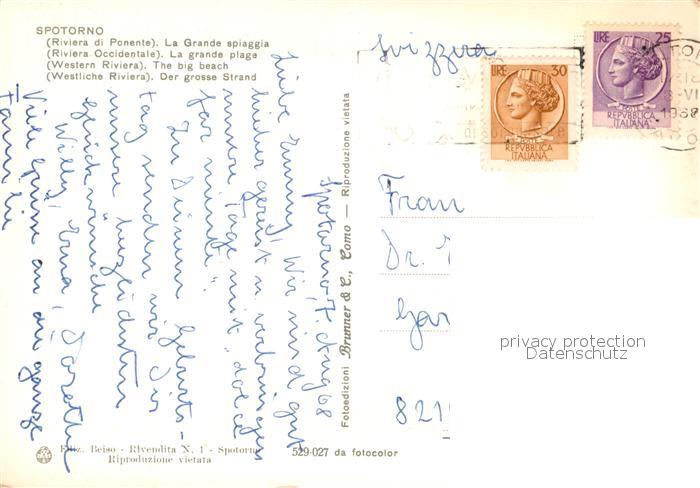 SPOTORNO
(Riviera di Ponente). La Grande spiaggia
(Riviera Occidentale). La grande plage
(Western Riviera). The big beach
(Westliche Riviera). Der grosse Strand
Spotorno, 7. Aug 68
Liebe Emmy! Wir sind gut
hieher gereist u. verbringen
unsere Tage mit "dolce
far niente".
Zu Deinem Geburts-
tag senden wir Dir
unsere herzlichsten
Glückwünsche
Willy, Erna, Dorothea
Viele Grüsse an die ganze
Familie
Ediz. Beiso - Rivendita N. 1 - Spotorno
Riproduzione vietata
529-027 da fotocolor
Fotoedizioni Brunner & C., Como — Riproduzione vietata
Svizzera
LIRE 30
POSTE
REPVBBLICA
ITALIANA
LIRE 25
POSTE
REPVBBLICA
ITALIANA
1968
Frau
Dr.
821
privacy protection
Datenschutz